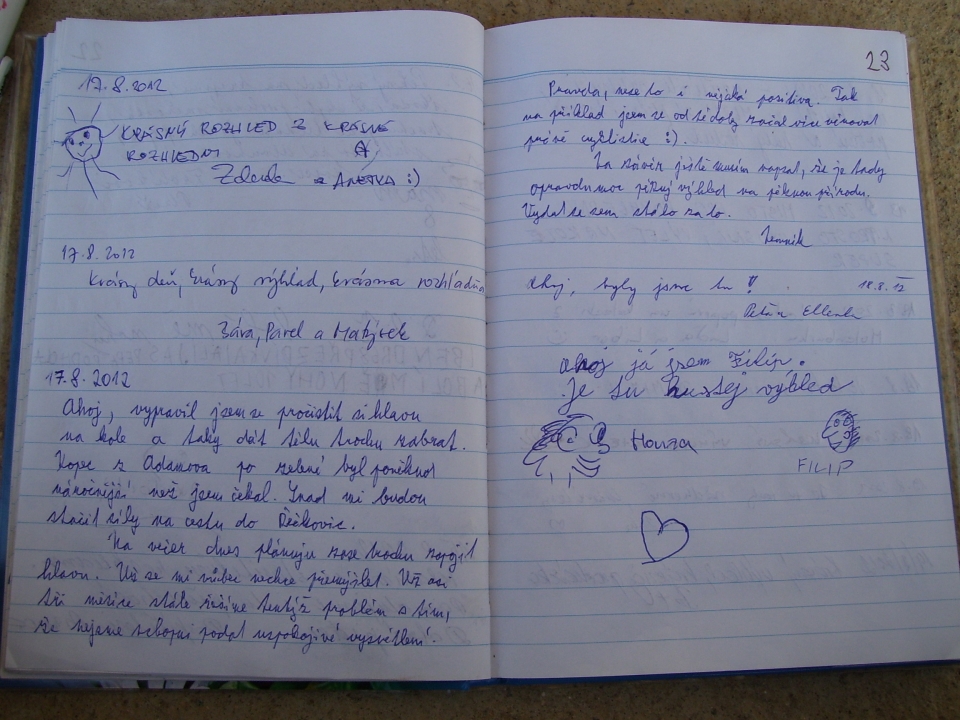 17.8.2012
KRÁSNÝ ROZHLED Z KRÁSNÉ
ROZHLEDNY
Zdenda a ANETKA :)
17.8.2012
Krásný deň, krásný výhľad, krásna rozhľadňa
Bára, Pavel a Matýsek
17.8.2012
Ahoj, vypravil jsem se pročistit si hlavu
na kole a taky dát tělu trochu zabrat.
Kopec z Adamova po zelené byl poněkud
náročnější než jsem čekal. Snad mi budou
stačit síly na cestu do Řečkovic.
Na večer dnes plánuju zase trochu zapojit
hlavu. Už se mi vůbec nechce přemýšlet. Už asi
tři měsíce stále řešíme tentýž problém s tím,
že nejsme schopni podat uspokojivé vysvětlení.
23
Pravda, nese to i nějaká pozitiva. Tak
na příklad jsem se od té doby začal více věnovat
právě cyklistice :).
Na závěr ještě musím napsat, že je tady
opravdu moc pěkný výhled na pěknou přírodu.
Vydat se sem stálo za to.
Ahoj, byly jsme tu! 18.8.12
Ahoj já jsem Filip.
Je tu hustej výhled
Honza
FILIP